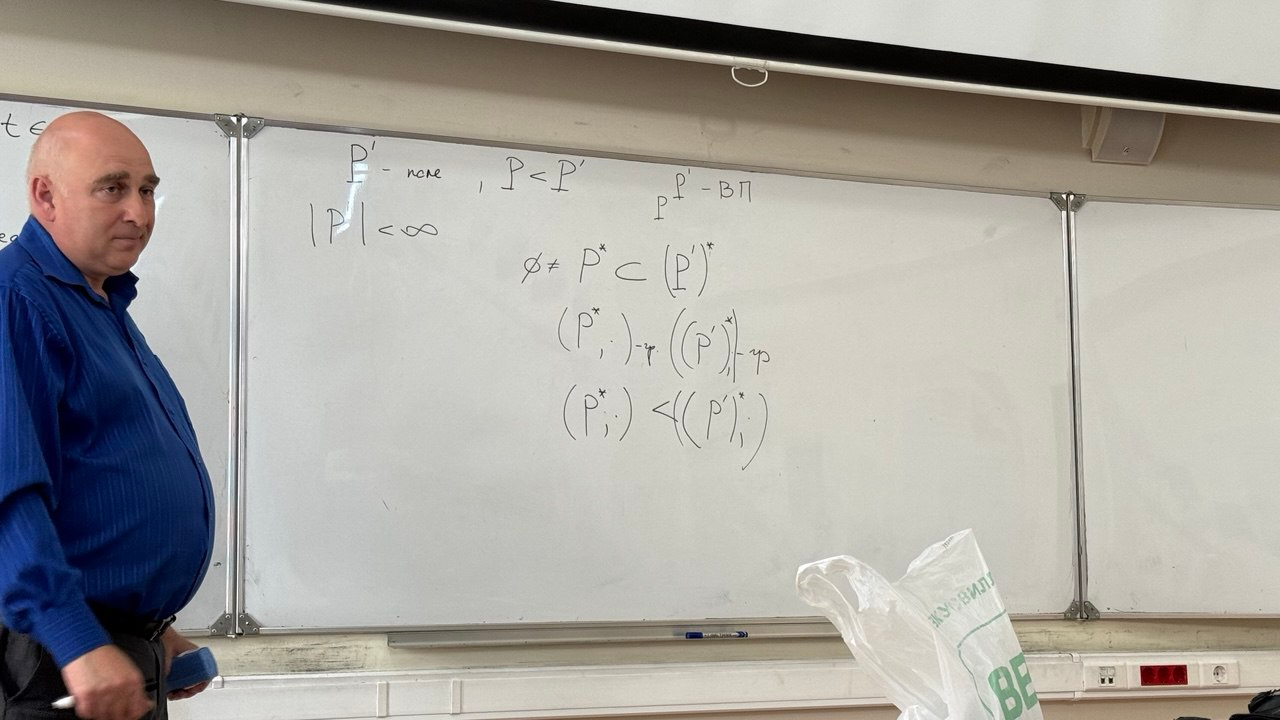 t ∈
P' - поле , P < P'
P P' - ВП
|P| < ∞
∅ ≠ P* ⊂ (P')*
(P*, ·) - гр. ((P')*, ·) - гр
(P*, ·) < ((P')*, ·)
ВЕ